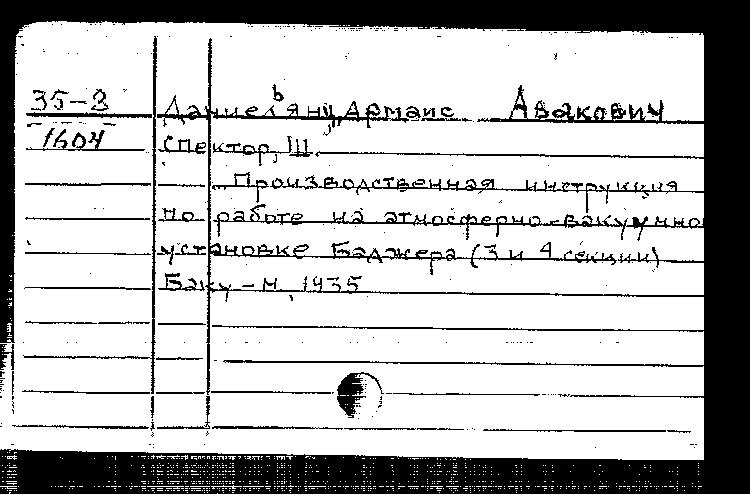 35-3
1604
Даниельянц, Армаис Авакович
Спектор, Ш.
Производственная инструкция
по работе на атмосферно-вакуумно
установке Баджера (3 и 4 секции)
Баку - М. 1935